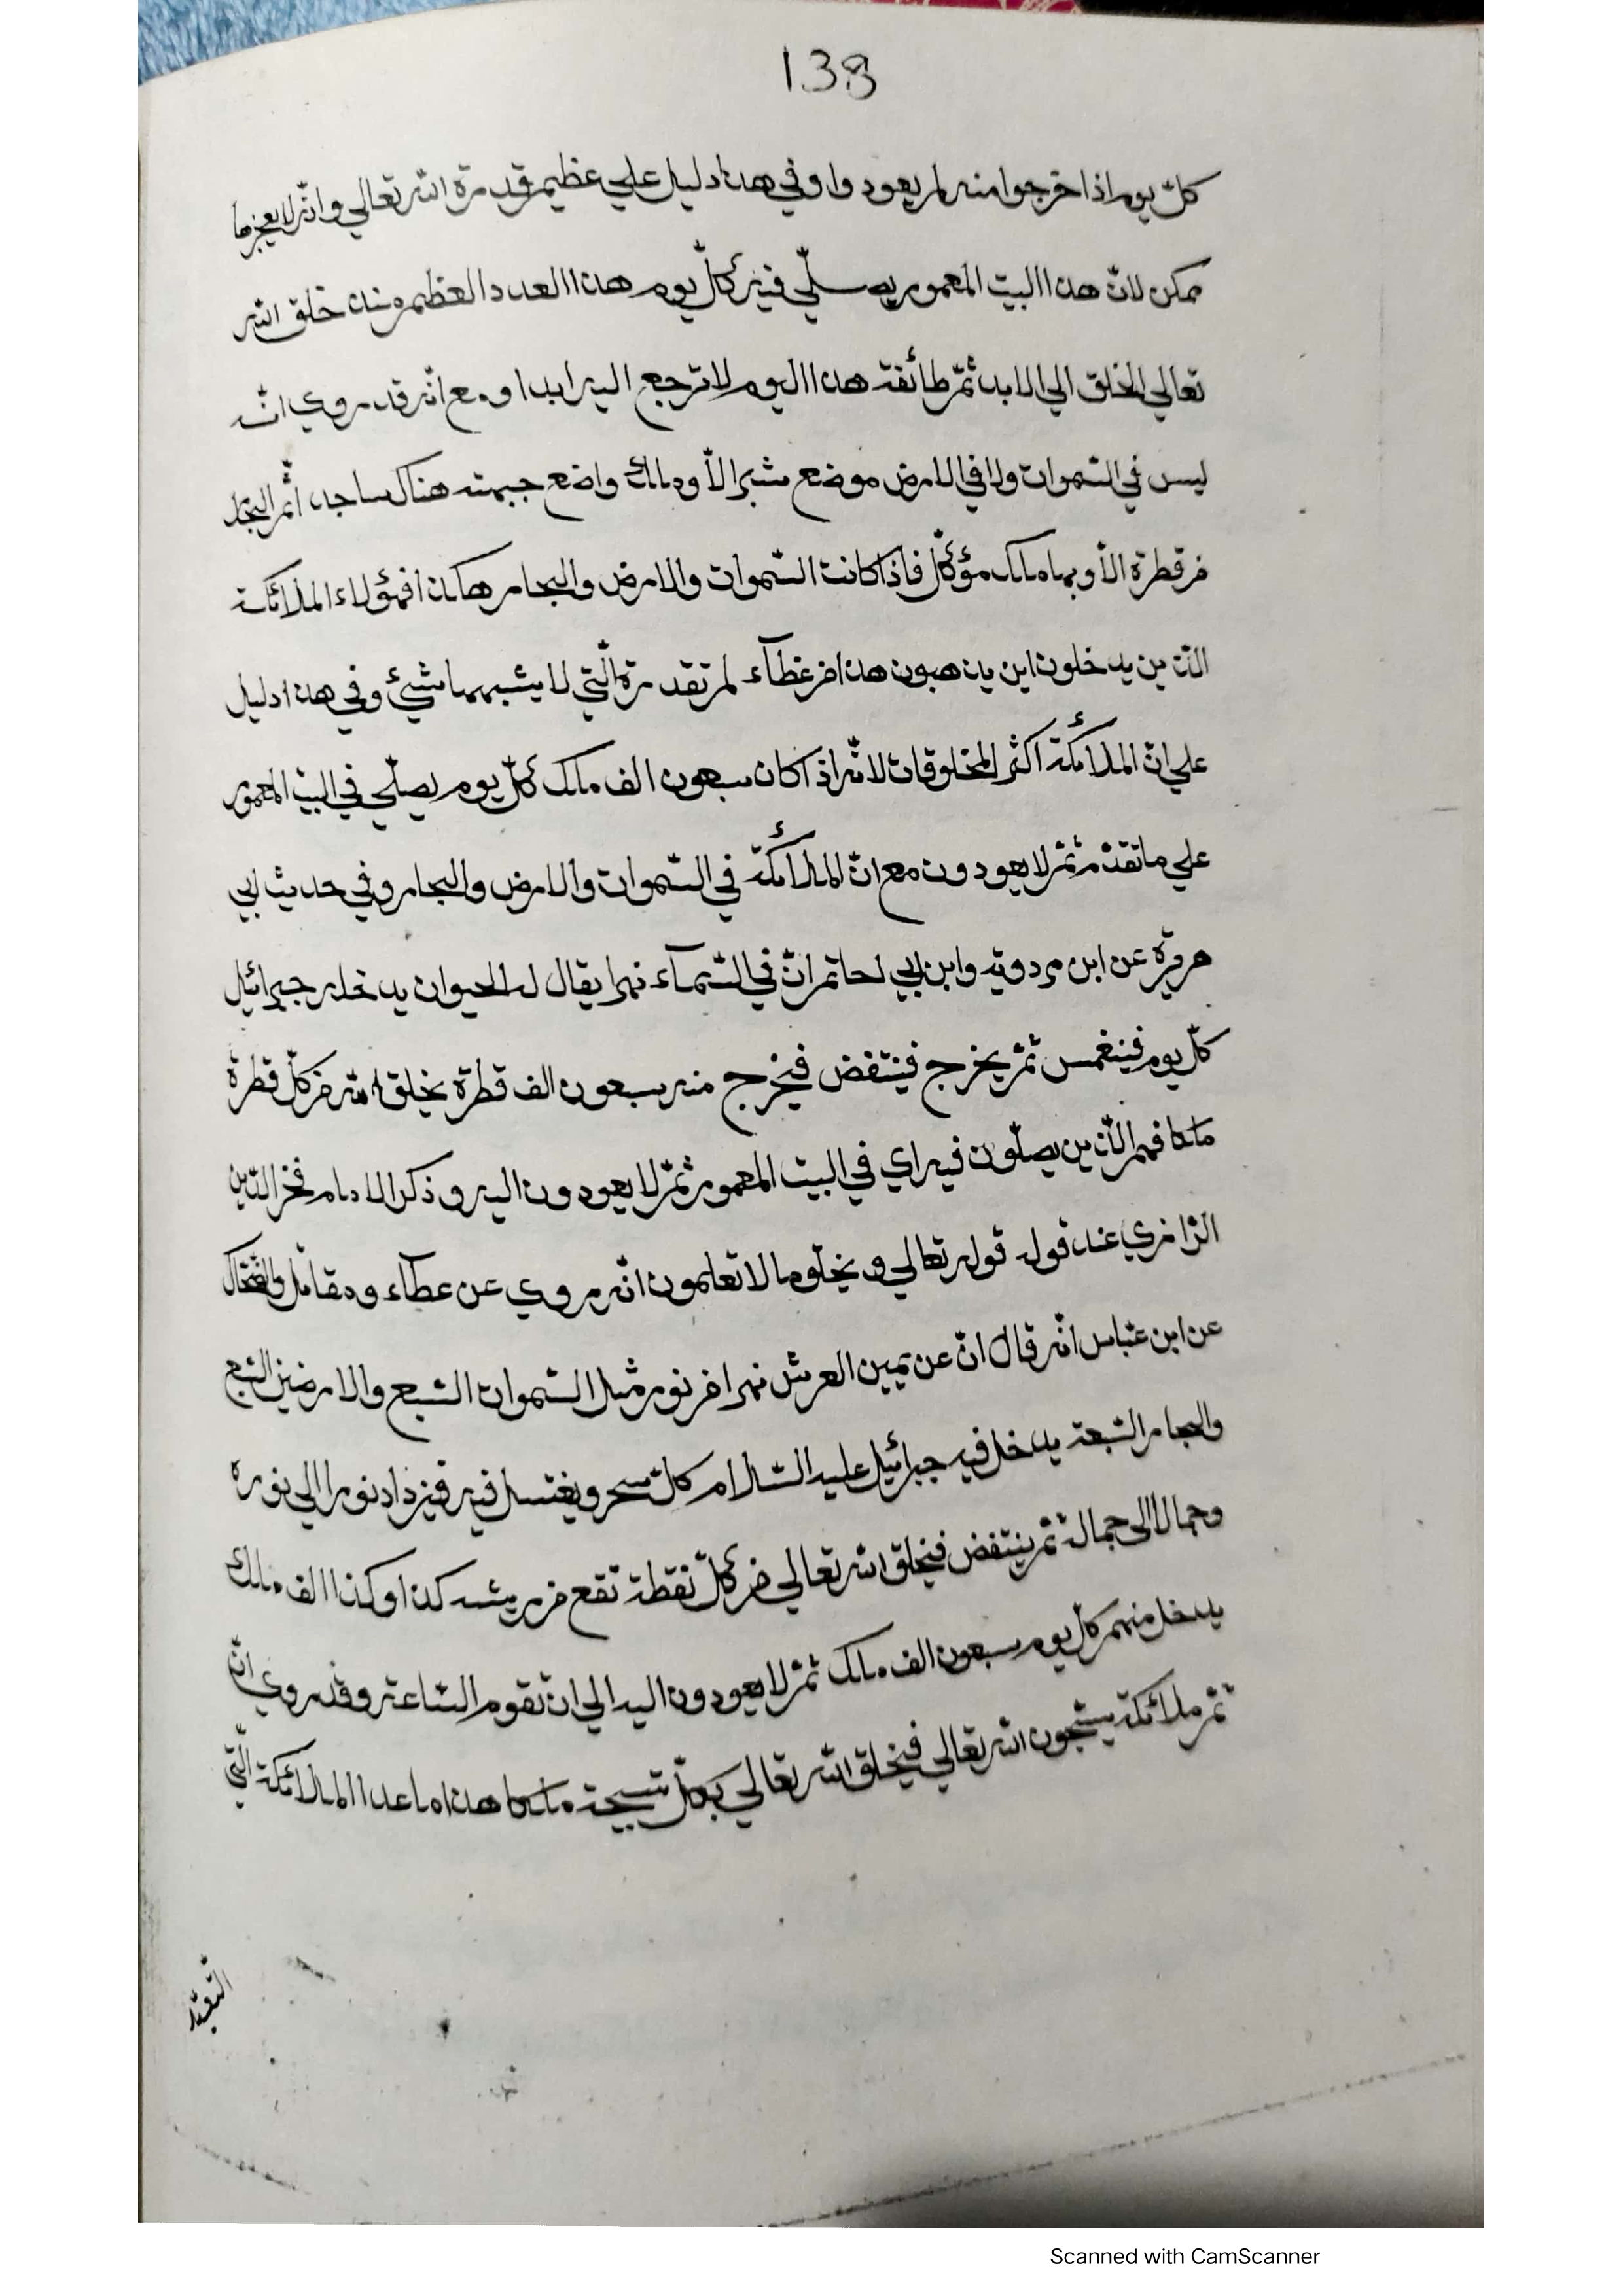 138
كلّ يوم اذا خرجوا منه لم يعودوا وفي هذا دليل علي عظيم قدرة الله تعالي وانّه لا يعجزها
ممكن لانّ هذا البيت المعمور يصلّي فيه كلّ يوم هذا العدد العظيم منذ خلق الله
تعالي الخلق الي الابد ثمّ طائفة هذا اليوم لا ترجع اليه ابدا ومع انّه قد روي انّه
ليس في السّموات ولا في الارض موضع شبر الاّ وملك واضع جبهته هناك ساجد اثم البحار
من قطرة الاّ وبها ملك مؤكّل فاذا كانت السّموات والارض والبحار هكذا فهؤلاء الملائكة
الّذين يدخلون اين يذهبون هذا من عظآء لم تقدرة الّتي لا يشبهها شيئ وفي هذا دليل
علي انّ الملائكة اكثر المخلوقات لانّه اذا كان سبعون الف ملك كلّ يوم يصلّي في البيت المعمور
علي ما تقدّم ثمّ لا يعودون مع انّ الملائكة في السّموات والارض والبحار وفي حديث ابي
هريرة عن ابن مردويه وابن ابي لحاتم انّ في السّمآء نهرا يقال له الحيوان يدخله جبرائيل
كلّ يوم فينغمس ثمّ يخرج فينتفض فيخرج منه سبعون الف قطرة يخلق الله من كلّ قطرة
ملكا فهم الّذين يصلّون فيه اي في البيت المعمور ثمّ لا يعودون اليه وذكر الامام فخر الدّين
الرّازي عند قوله قوله تعالي ويخلق ما لا تعلمون انّه روي عن عطآء ومقاتل والضّحّاك
عن ابن عبّاس انّه قال انّ عن يمين العرش نهرا من نور مثل السّموات السّبع والارضين السّبع
والبحار السّبعة يدخل فيه جبرائيل عليه السّلام كلّ سحر ويغتسل فيه فيزداد نورا الي نوره
وجمالا الى جماله ثمّ ينتفض فيخلق الله تعالي من كلّ نقطة تقع من ريشه كذا وكذا الف ملك
يدخل منهم كلّ يوم سبعون الف ملك ثمّ لا يعودون اليه الي ان تقوم السّاعة وقد روي انّ
ثمّ ملائكة يسبّحون الله تعالي فيخلق الله تعالي بكلّ تسبيحة ملكا هذا ما عدا الملائكة الّتي
التعبّد
Scanned with CamScanner